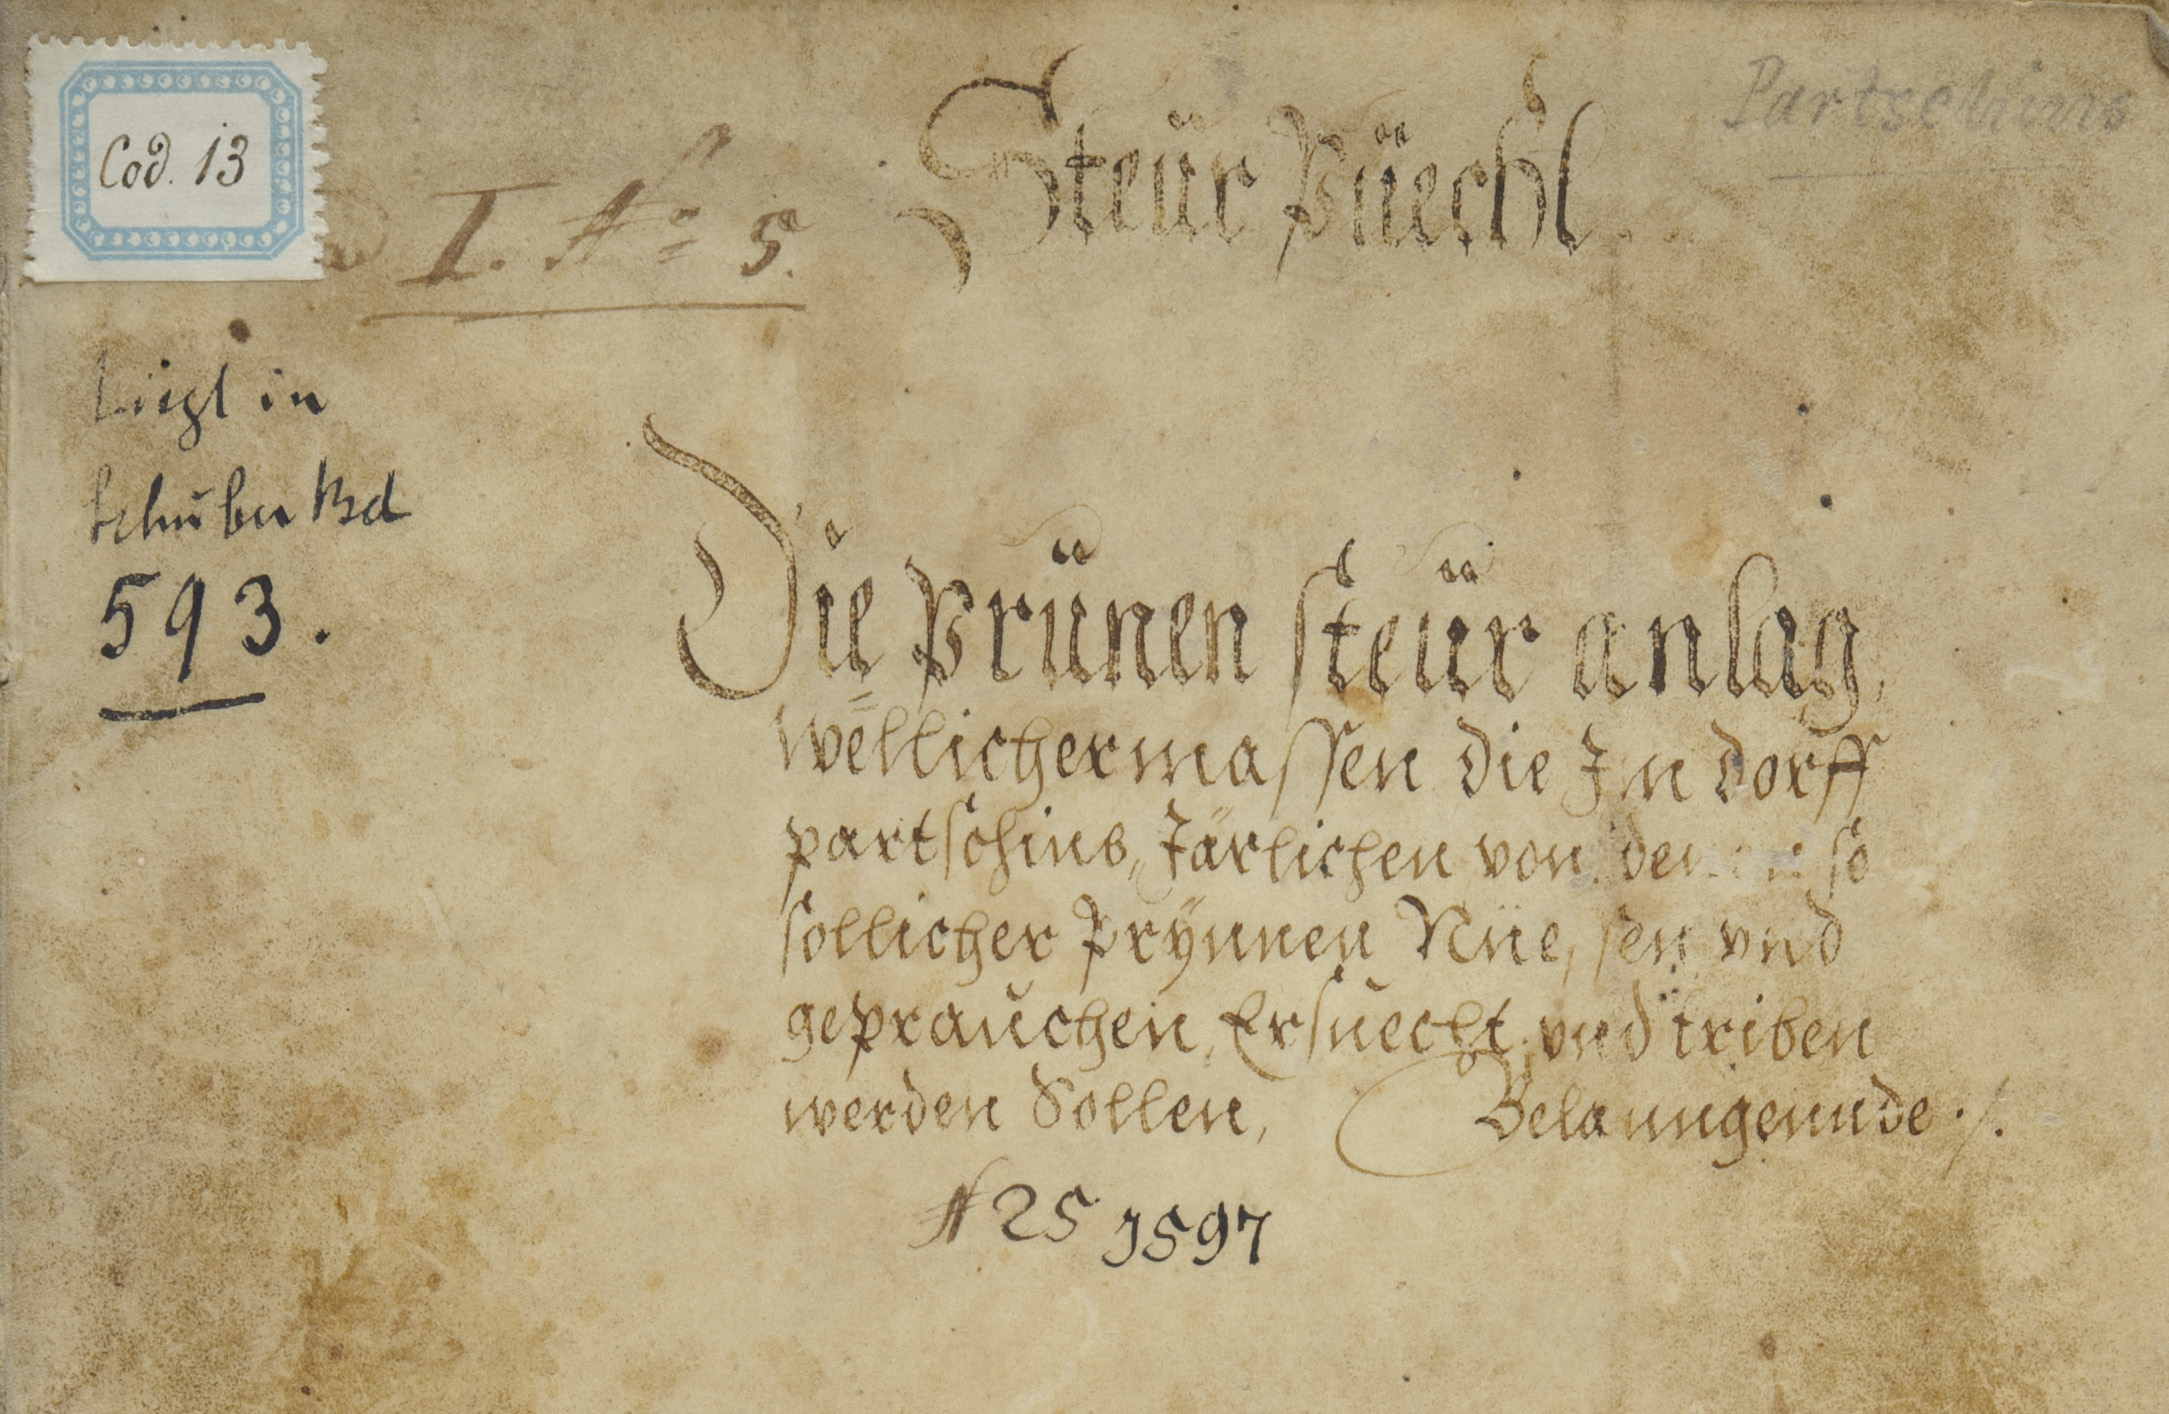 Cod. 13
I. No 5.
Steür Püechl
Partschins
Liegt in
Schuber Bd
593.
Die Prünen steür anlag,
wellichermassen die In dorff
partschins, Järlichen von denen so
sollicher Prÿnnen Nüessen vnd
geprauchen, Ersuecht vnd triben
werden Sollen, Belanngennde ./.
N 25 1597